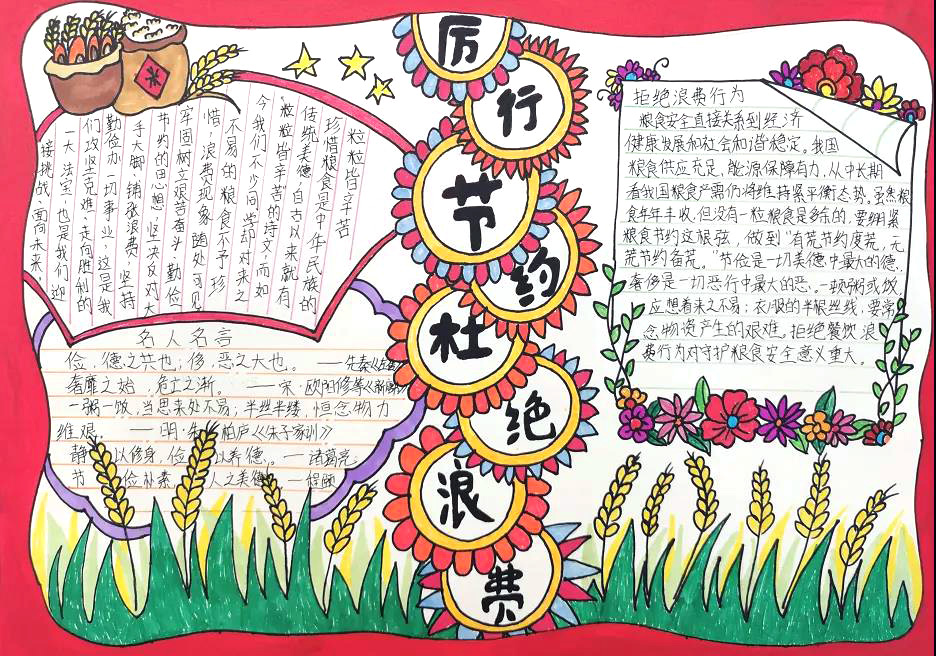 厉
行
节
约
杜
绝
浪
费
粒粒皆辛苦
珍惜粮食是中华民族的
传统美德,自古以来就有
"粒粒皆辛苦"的诗文,而如
今我们不少同学却对来之
不易的粮食不予珍
惜,浪费现象随处可见
牢固树立艰苦奋斗、勤俭
节约的思想,坚决反对大
手大脚、铺张浪费,坚持
勤俭办一切事业,这是我
们攻坚克难、走向胜利的
一大法宝,也是我们迎
接挑战、面向未来
名人名言
俭,德之共也;侈,恶之大也。——先秦《左
奢靡之始,危亡之渐。——宋·欧阳修等《新唐
一粥一饭,当思来处不易;半丝半缕,恒念物力
维艰。——明·朱柏庐《朱子家训》
静以修身,俭以养德。——诸葛亮
节俭朴素,人之美德。——程颐
米
拒绝浪费行为
粮食安全直接关系到经济
健康发展和社会和谐稳定。我国
粮食供应充足,能源保障有力,从中长期
看我国粮食产需仍将维持紧平衡态势。虽然粮
食年年丰收,但没有一粒粮食是多余的,要绷紧
粮食节约这根弦,做到"有荒节约度荒,无
荒节约备荒。"节俭是一切美德中最大的德,
奢侈是一切恶行中最大的恶。一顿粥或饭,
应想着来之不易;衣服的半根丝线,要常
念物资产生的艰难。拒绝餐饮浪
费行为对守护粮食安全意义重大。